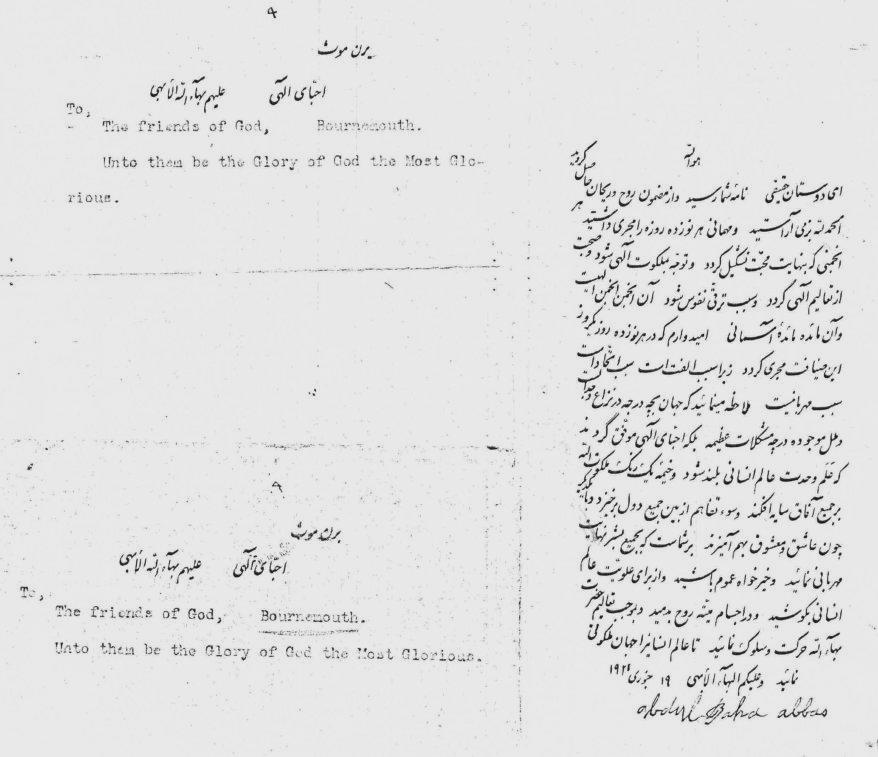 ۹
برن موث
احبّای الهی علیهم بهآء اللّه الأبهی
To,
The friends of God, Bournemouth.
Unto them be the Glory of God the Most Glo-
rious.
۹
برن موث
احبّای الهی علیهم بهآء اللّه الأبهی
To,
The friends of God, Bournemouth.
Unto them be the Glory of God the Most Glorious.
هواللّه
ای دوستان حقیقی نامهٔ شما رسید و از مضمون روح و ریحان حاصل گردید
الحمد للّه بزمی آراستید و مهمانی هر نوزده روزه را مجری داشتید هر
انجمنی که بنهایت محبّت تشکیل گردد و توجّه بملکوت الهی شود و صحبت
از تعالیم الهی گردد و سبب ترقّی نفوس شود آن انجمن انجمن الهیست
و آن مائده مائدهٔ آسمانی امیدوارم که در هر نوزده روز یکروز
این ضیافت مجری گردد زیرا سبب الفت است سبب اتّحاد است
سبب مهربانیست ملاحظه مینمائید که جهان بچه درجه در نزاع و جدالست
و ملل موجوده در چه مشکلات عظیمه بلکه احبّای الهی موفّق گردند
که عَلَم وحدت عالم انسانی بلند شود و خیمه یک رنگ ملکوت اللّه
بر جمیع آفاق سایه افکند و سوء تفاهم از بین جمیع دول برخیزد و با یکدیگر
چون عاشق و معشوق بهم آمیزند بر شماست که بجمیع بشر نهایت
مهربانی نمائید و خیرخواه عموم باشید و از برای علویّت عالم
انسانی بکوشید و در اجسام میّته روح بدمید و بموجب تعالیم حضرت
بهآء اللّه حرکت و سلوک نمائید تا عالم انسانی را جهان ملکوتی
نمائید و علیکم البهآء الأبهی ۱۹ جنوری ۱۹۲۱
abdul Baha abbas